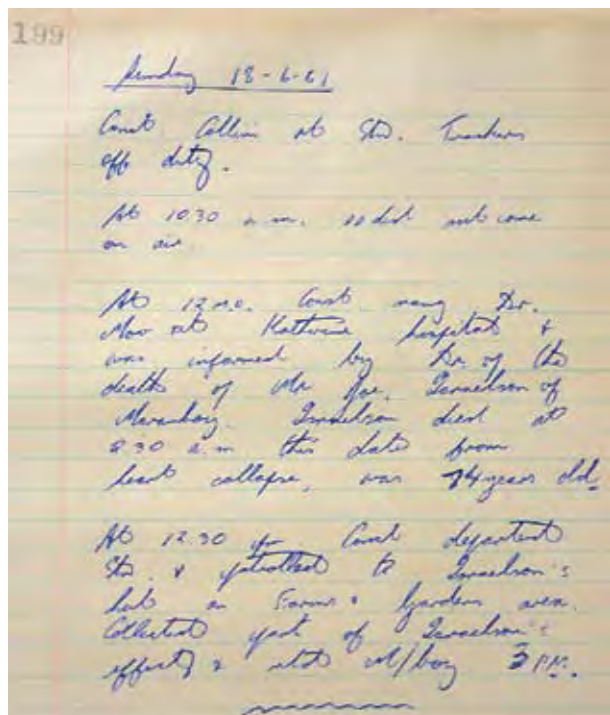 199
Sunday 18-6-61
Const Collins at Stn. Trackers
off duty.
At 10.30 a.m. did not come
on air
At 12 Const rang Dr.
at Katherine hospital &
was informed by Dr. of the
death of Mr Joe. Israelson of
Maranboy. Israelson died at
8.30 a.m this date from
heart collapse, was 74 years old.
At 12.30 pm Const departed
Stn. & patrolled to Israelson's
hut in Farms & Gardens area.
Collected part of Israelson's
effects & retd m/boy 3 PM.